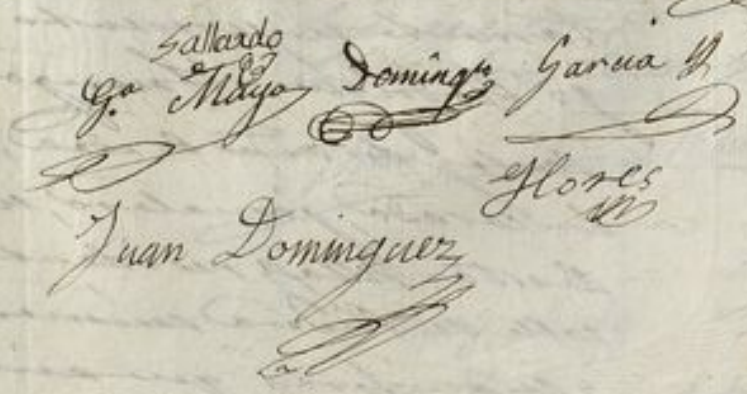 Gallardo
G.ª Mayo Doming.º García
Flores
Juan Dominguez